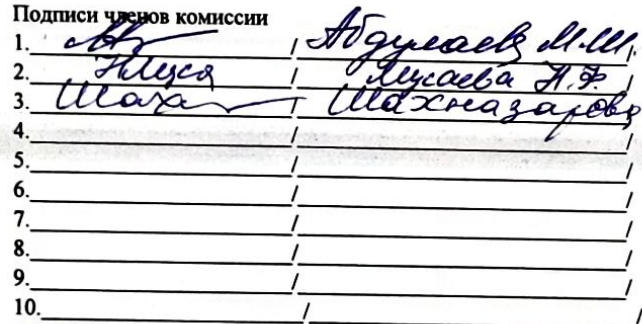 Подписи членов комиссии
1. / Абдулаев М.Ш. /
2. / Мусаева Н.Ф. /
3. Шаха / Шахназарова /
4. / /
5. / /
6. / /
7. / /
8. / /
9. / /
10. / /